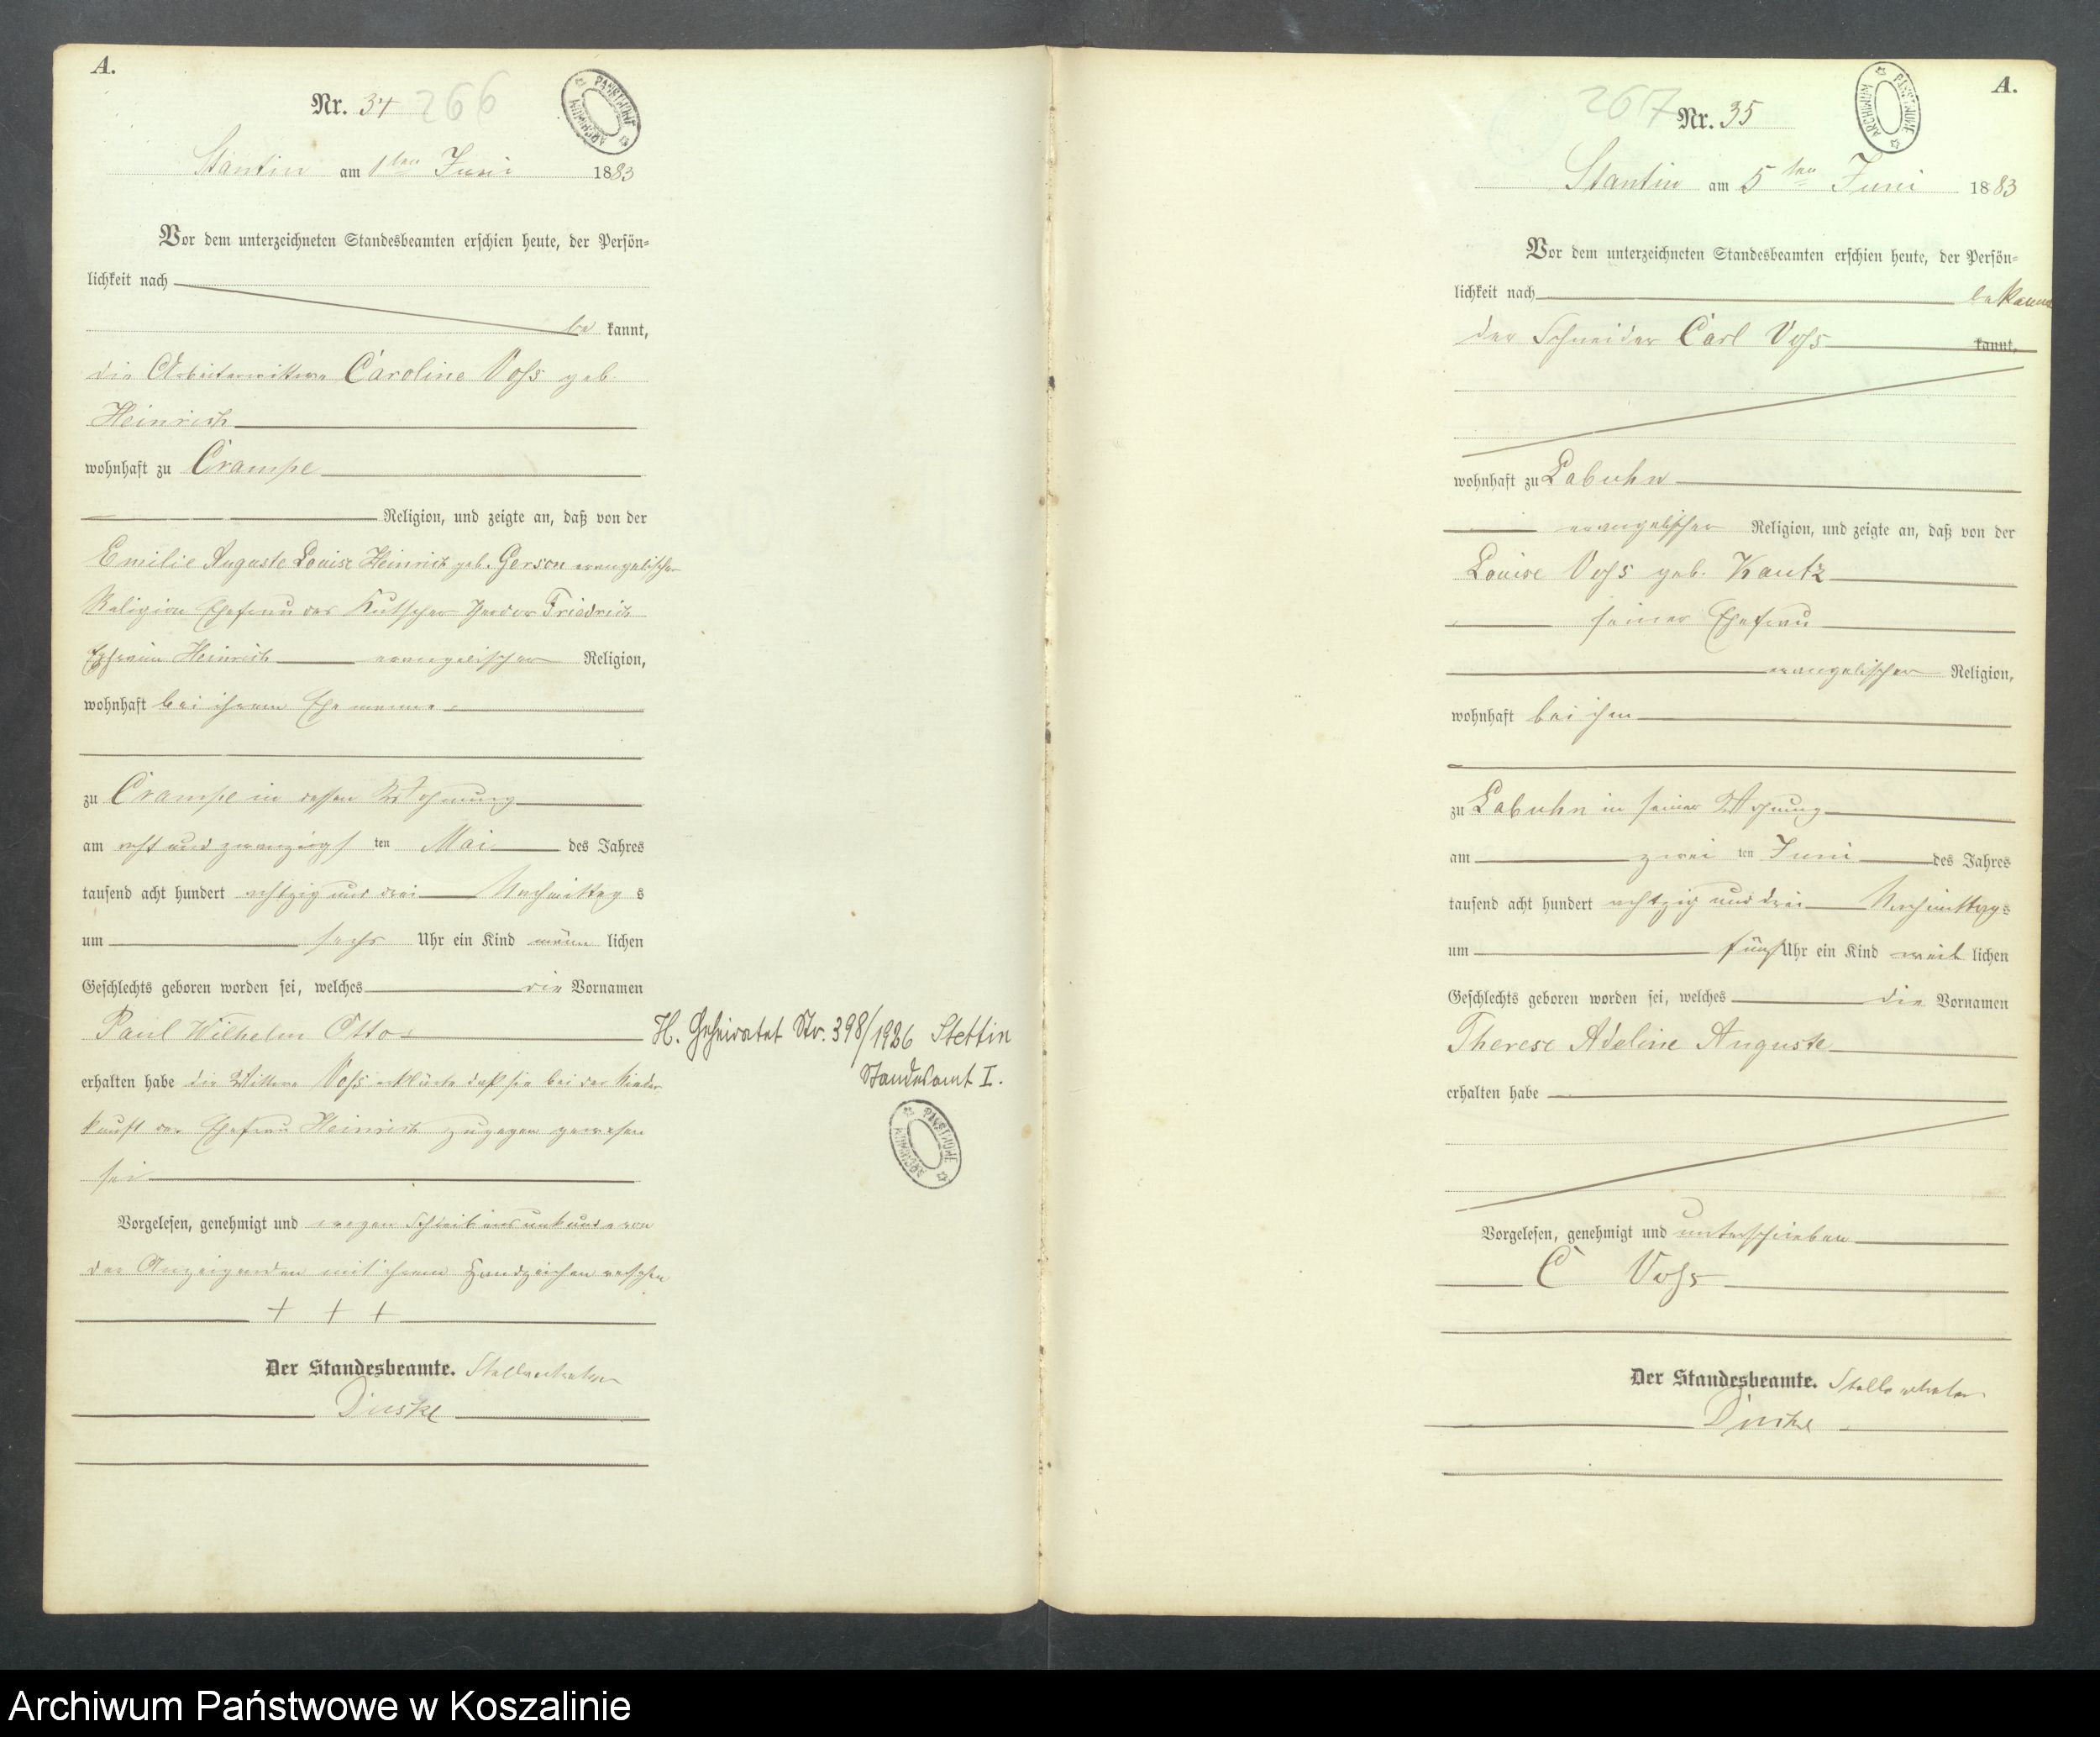 A.
Nr. 34 266
ARCHIWUM PAŃSTWOWE
Stantin am 1ten Juni 1883
Vor dem unterzeichneten Standesbeamten erschien heute, der Persön-
lichkeit nach
be kannt,
die Arbeiterwittwe Caroline Voss geb.
Heinrich
wohnhaft zu Crampe
Religion, und zeigte an, daß von der
Emilie Auguste Louise Heinrich geb. Gerson evangelischer
Religion Ehefrau des Kutscher Friedrich
Heinrich evangelischer Religion,
wohnhaft bei ihrem Ehemanne
zu Crampe in dessen Wohnung
am acht und zwanzigsten Mai des Jahres
tausend acht hundert achtzig und drei Nachmittags
um sechs Uhr ein Kind männlichen
Geschlechts geboren worden sei, welches die Vornamen
Paul Wilhelm Otto
erhalten habe die Wittwe Voss erklärte daß sie bei der Nieder
kunft der Ehefrau Heinrich zugegen gewesen
sei
Vorgelesen, genehmigt und wegen Schreibensunkunde von
der Anzeigenden mit ihrem Handzeichen versehen
+ + +
Der Standesbeamte. Stellvertreter
H. Geheiratet Nr. 398/1926 Stettin
Standesamt I.
ARCHIWUM PAŃSTWOWE
A.
267 Nr. 35
ARCHIWUM PAŃSTWOWE
Stantin am 5ten Juni 1883
Vor dem unterzeichneten Standesbeamten erschien heute, der Persön-
lichkeit nach bekannt
der Schneider Carl Voss kannt,
wohnhaft zu Labuhn
evangelischer Religion, und zeigte an, daß von der
Louise Voss geb. Kautz
seiner Ehefrau
evangelischer Religion,
wohnhaft bei ihm
zu Labuhn in seiner Wohnung
am zweiten Juni des Jahres
tausend acht hundert achtzig und drei Nachmittags
um fünf Uhr ein Kind weiblichen
Geschlechts geboren worden sei, welches die Vornamen
Therese Adeline Auguste
erhalten habe
Vorgelesen, genehmigt und unterschrieben
C Voss
Der Standesbeamte. Stellvertreter
Archiwum Państwowe w Koszalinie